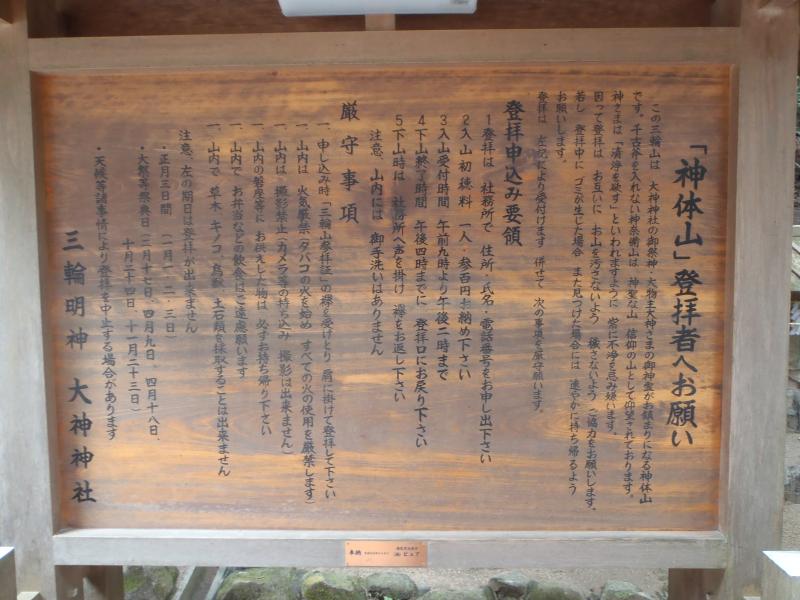 「神体山」登拝者へお願い
この三輪山は 大神神社の御祭神・大物主大神さまの御神霊がお鎮まりになる神体山
です。千古斧を入れない神奈備山は 神聖な山 信仰の山として仰望されております。
神さまは「清浄を欲す」といわれますように 常に不浄を忌み嫌います。
因って登拝は お互いに お山を汚さないよう 穢さないよう ご協力をお願いします。
若し 登拝中に ゴミが生じた場合 また見つけた場合には 速やかに持ち帰るよう
お願いします。
登拝は 左記により受付けます 併せて 次の事項を厳守願います。
登拝申込み要領
1登拝は 社務所で 住所・氏名・電話番号をお申し出下さい
2入山初穂料 一人・参百円を納め下さい
3入山受付時間 午前九時より午後二時まで
4下山終了時間 午後四時までに 登拝口にお戻り下さい
5下山時は 社務所へ声を掛け 襷をお返し下さい
注意、山内には 御手洗いはありません
厳守事項
一、申し込み時「三輪山参拝証」の襷を受けとり 肩に掛けて登拝して下さい
一、山内は 火気厳禁(タバコの火を始め すべての火の使用を厳禁します)
一、山内は 撮影禁止(カメラ等の持ち込み 撮影は出来ません)
一、山内の磐座等に お供えした物は 必ずお持ち帰り下さい
一、山内で お弁当などの飲食はご遠慮願います
一、山内で 草木 キノコ 鳥獣 土石類を採取することは出来ません
注意、左の期日は登拝が出来ません
・正月三日間 (一月一・二・三日)
・大祭等祭典日(二月十七日、四月九日、四月十八日、
十月二十四日、十一月二十三日)
・天候等諸事情により登拝を中止する場合があります
三輪明神 大神神社
奉納
㈱ピュア